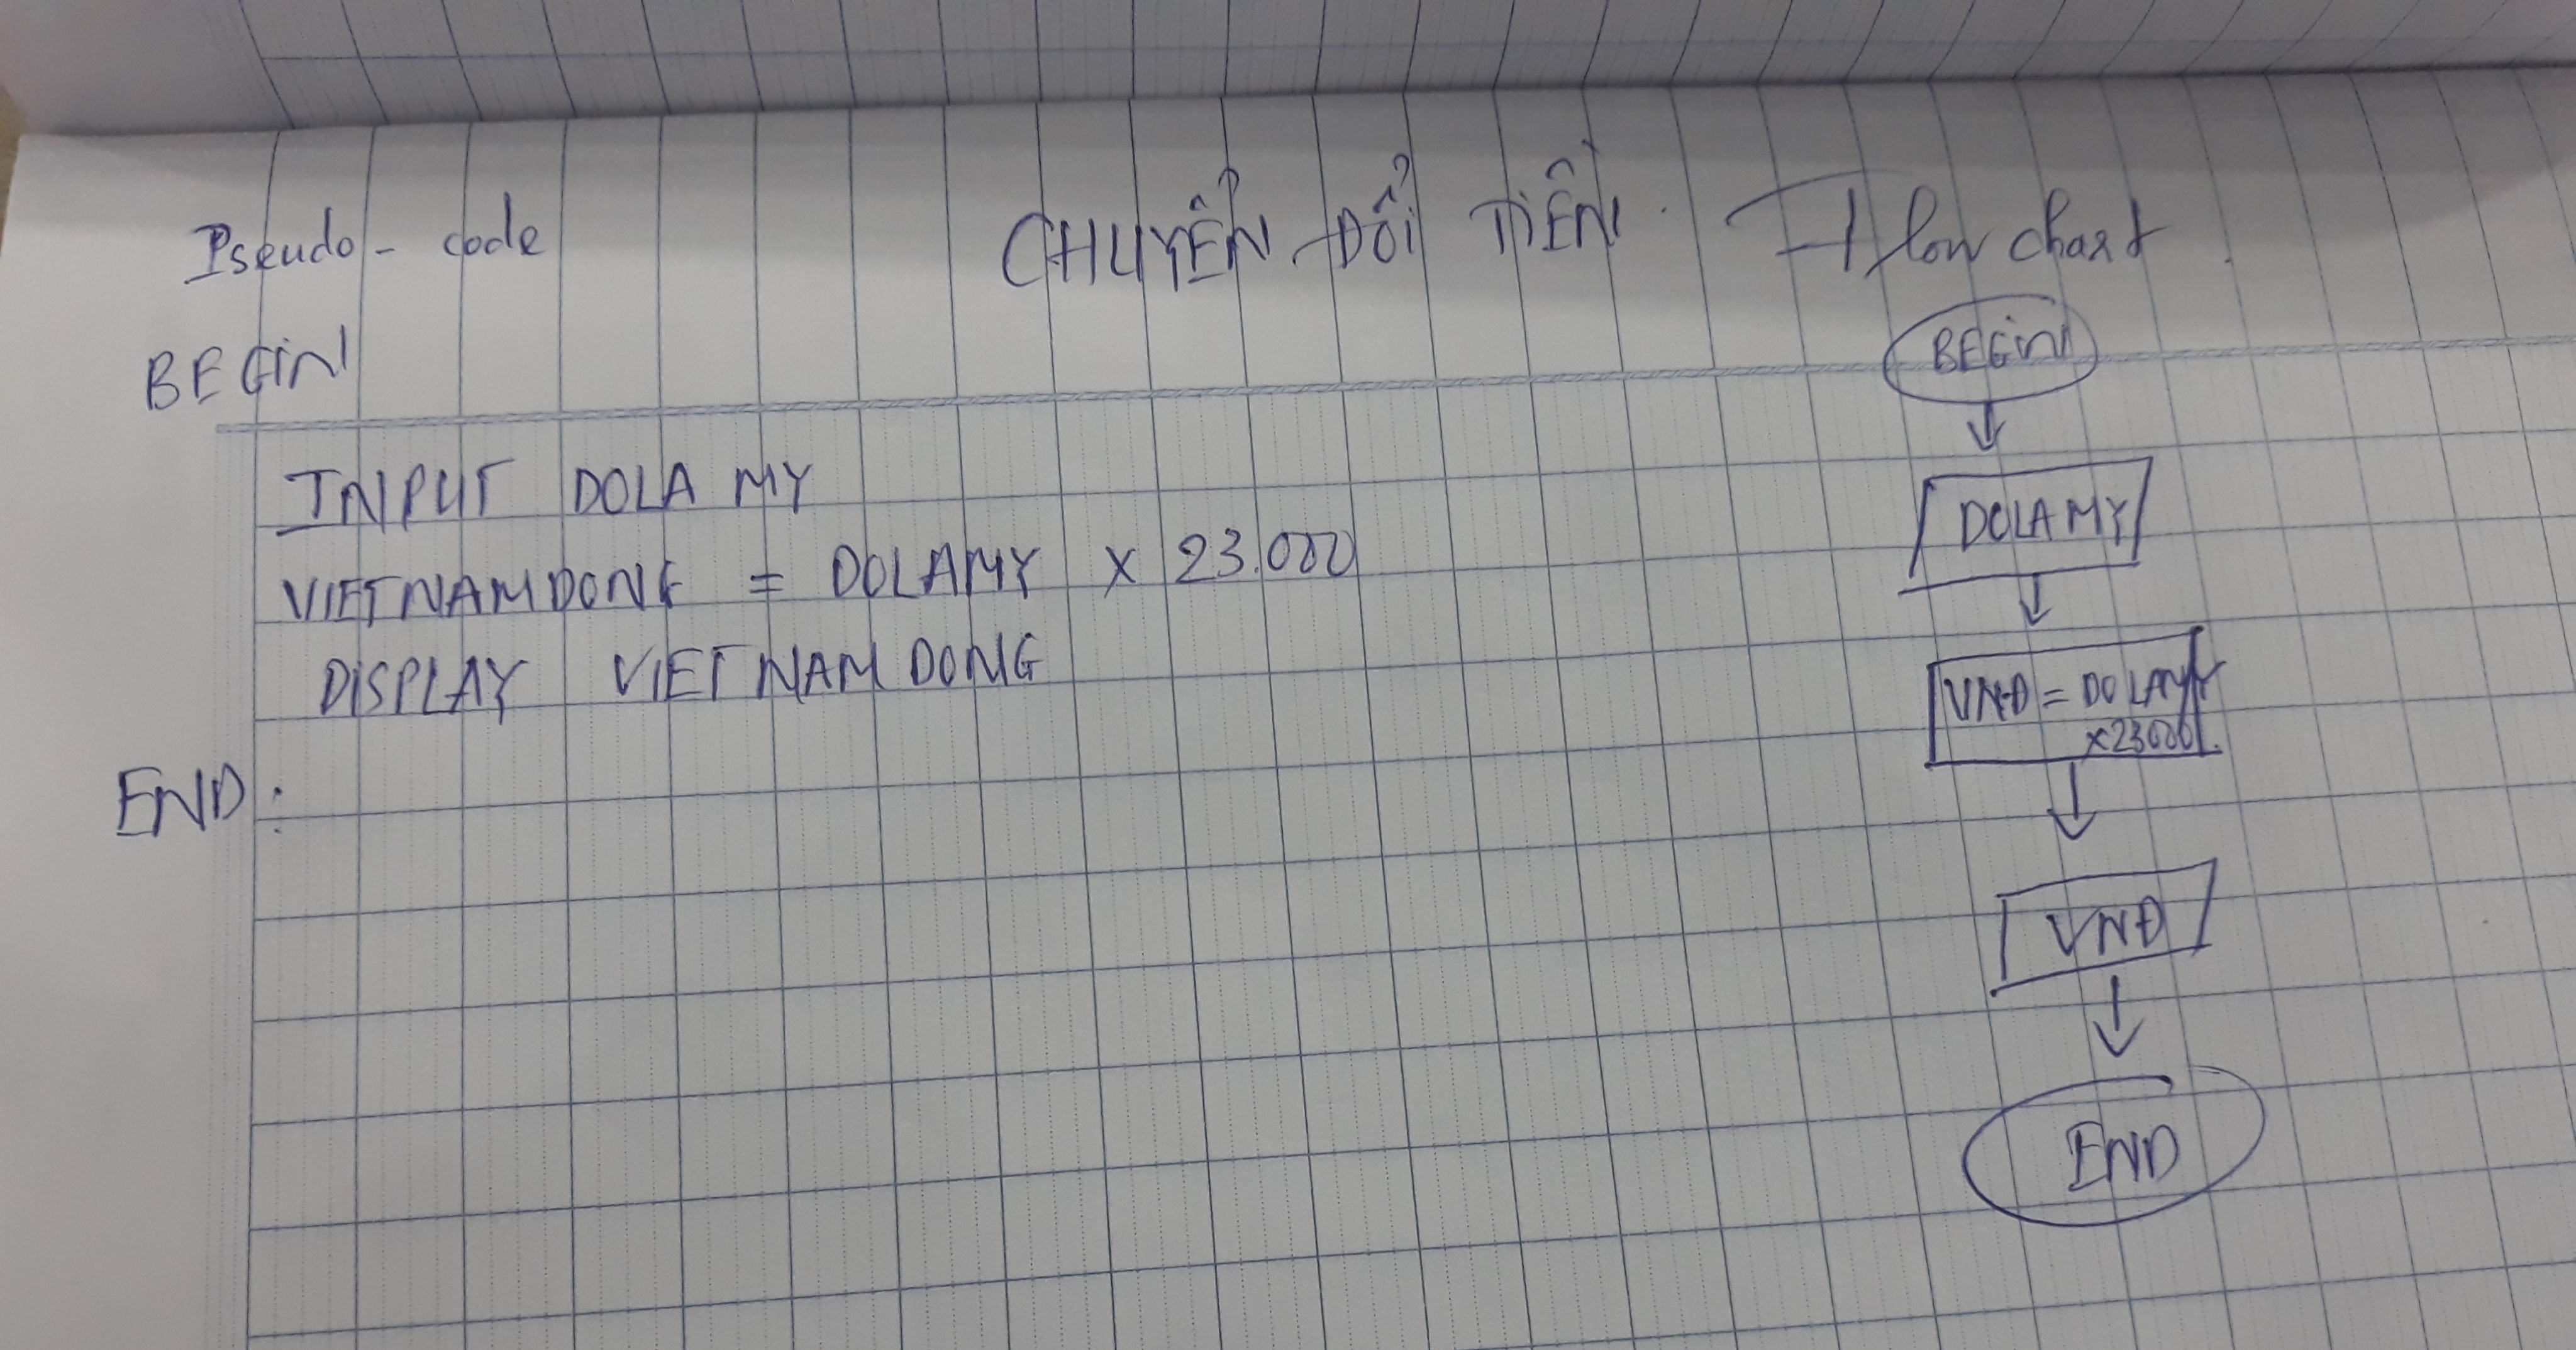 Pseudo - code
CHUYỂN ĐỔI TIỀN
Flow chart
BEGIN
INPUT DOLA MY
VIETNAMDONG = DOLAMY x 23.000
DISPLAY VIETNAM DONG
END:
BEGIN
DOLAMY
VNĐ = DOLAMY
x23000
VNĐ
END